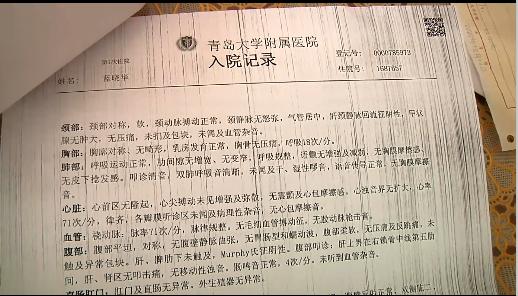 青岛大学附属医院
入院记录
登记号：
住院号：
姓名：
颈部：颈部对称，软，颈动脉搏动正常，颈静脉无怒张，气管居中，肝颈静脉回流征阴性，甲状
腺无肿大，无压痛，未扪及包块，未闻及血管杂音。
胸部：胸廓对称，无畸形，乳房发育正常，胸骨无压痛，呼吸18次/分。
肺部：呼吸运动正常，肋间隙无增宽，无变窄，呼吸规整，语颤无增强及减弱，无胸膜摩擦感，
无皮下捻发感。叩诊清音，双肺呼吸音清晰，未闻及干、湿性啰音，语音传导正常，无胸膜摩擦
音。
心脏：心前区无隆起，心尖搏动未见增强及弥散，无震颤及心包摩擦感，心浊音界无扩大，心率
71次/分，律齐，各瓣膜听诊区未闻及病理性杂音，无心包摩擦音。
血管：桡动脉：脉率71次/分，脉律规整，无毛细血管搏动征，无股动脉枪击音。
腹部：腹部平坦，对称，无腹壁静脉曲张，无胃肠型和蠕动波，腹部柔软，无压痛及反跳痛，未
触及异常包块。肝、脾肋下未触及，Murphy氏征阴性。腹部叩诊：肝上界在右锁骨中线第五肋
间，肝、肾区无叩击痛，无移动性浊音。肠鸣音正常，4次/分，未听到血管杂音。
直肠肛门：肛门及直肠无异常。外生殖器无异常。